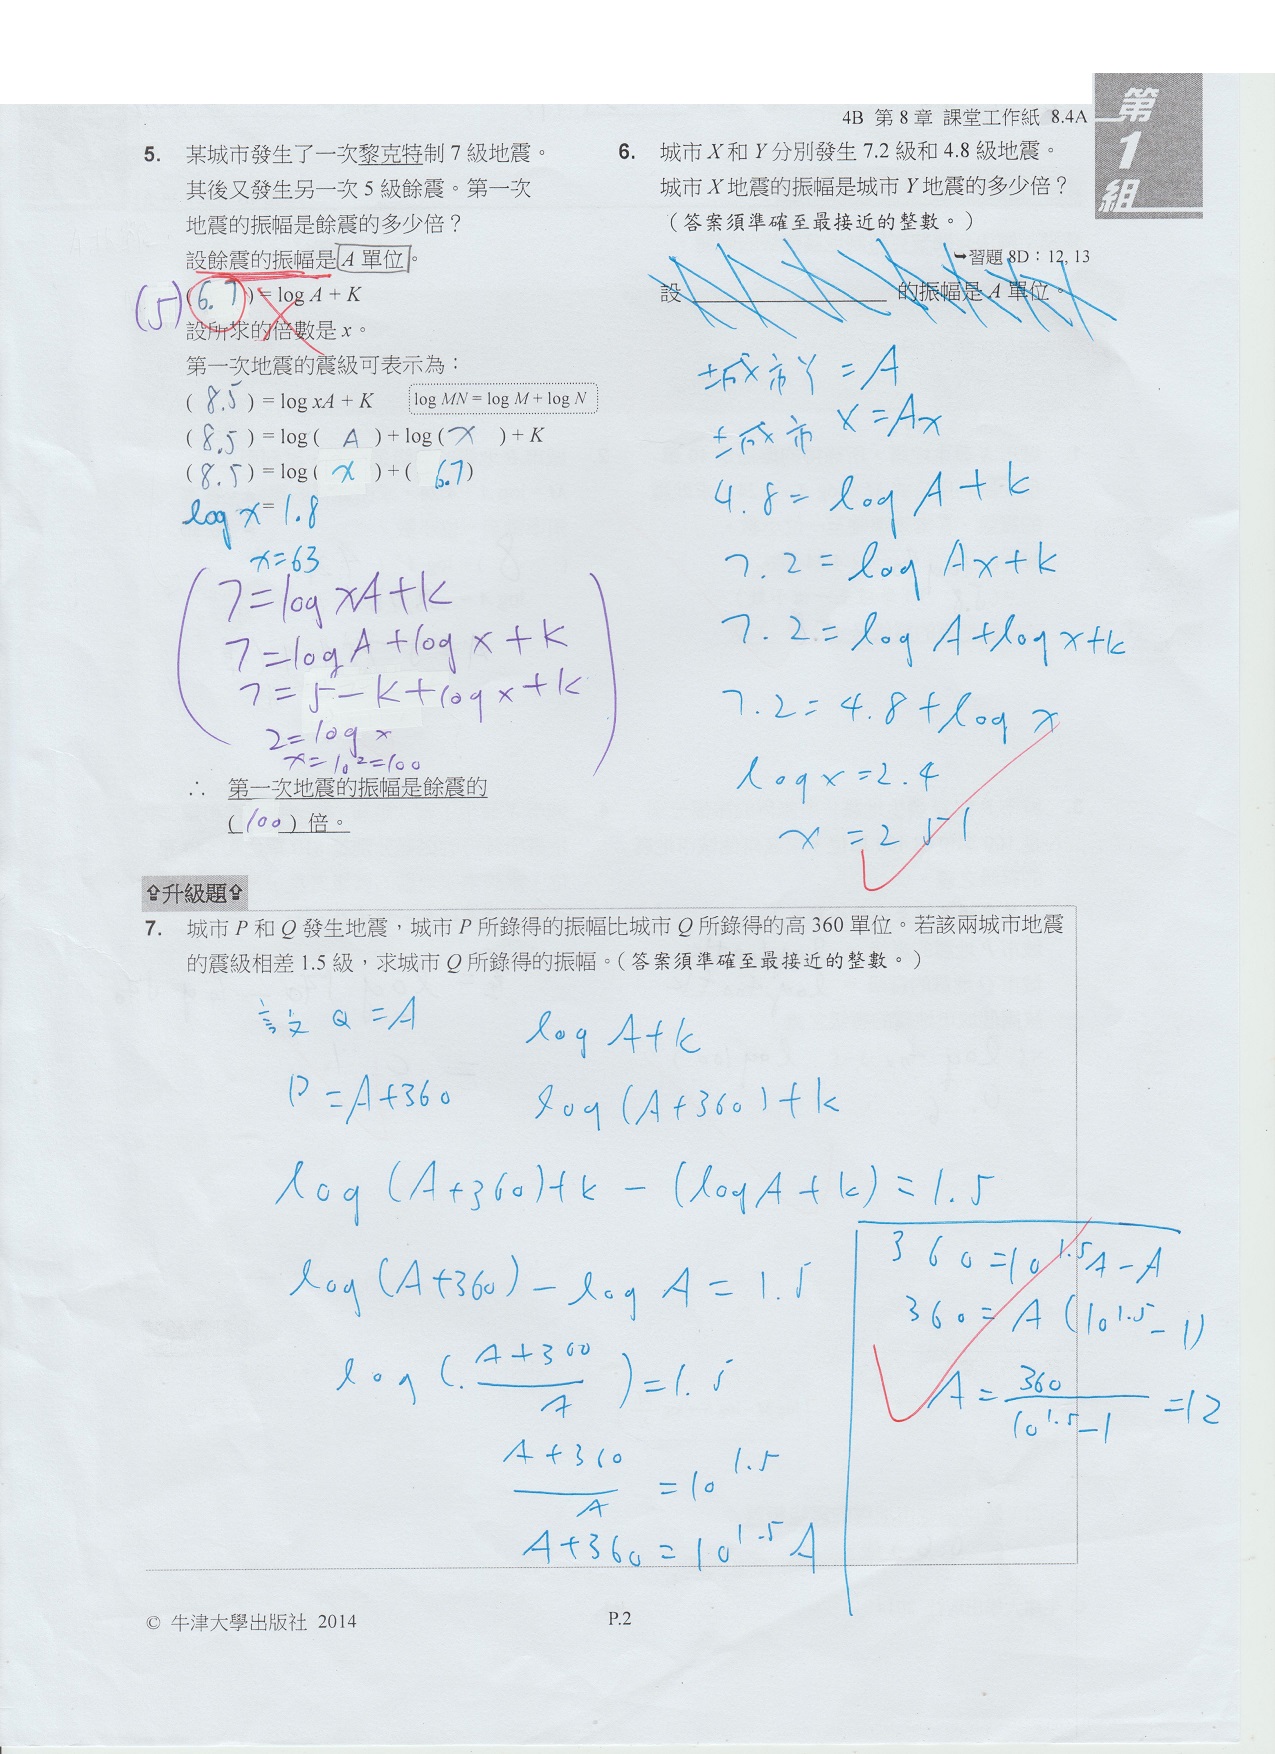 4B 第 8 章 課堂工作紙 8.4A
第
1
組
5. 某城市發生了一次黎克特制 7 級地震。
其後又發生另一次 5 級餘震。第一次
地震的振幅是餘震的多少倍？
設餘震的振幅是 A 單位。
(5) ( 6.7 ) = log A + K
設所求的倍數是 x。
第一次地震的震級可表示為：
( 8.5 ) = log xA + K log MN = log M + log N
( 8.5 ) = log ( A ) + log ( x ) + K
( 8.5 ) = log ( x ) + ( 6.7 )
log x = 1.8
x = 63
7 = log xA + k
7 = log A + log x + k
7 = 5 - k + log x + k
2 = log x
x = 10² = 100
∴ 第一次地震的振幅是餘震的
( 100 ) 倍。
6. 城市 X 和 Y 分別發生 7.2 級和 4.8 級地震。
城市 X 地震的振幅是城市 Y 地震的多少倍？
（答案須準確至最接近的整數。）
➥習題 8D：12, 13
設 ____________ 的振幅是 A 單位。
城市 Y = A
城市 X = Ax
4.8 = log A + k
7.2 = log Ax + k
7.2 = log A + log x + k
7.2 = 4.8 + log x
log x = 2.4
x = 251
⇪升級題⇪
7. 城市 P 和 Q 發生地震，城市 P 所錄得的振幅比城市 Q 所錄得的高 360 單位。若該兩城市地震
的震級相差 1.5 級，求城市 Q 所錄得的振幅。（答案須準確至最接近的整數。）
設 Q = A log A + k
P = A + 360 log (A + 360) + k
log (A + 360) + k - (log A + k) = 1.5
log (A + 360) - log A = 1.5
log ( (A + 360) / A ) = 1.5
(A + 360) / A = 10^1.5
A + 360 = 10^1.5 A
360 = 10^1.5 A - A
360 = A (10^1.5 - 1)
A = 360 / (10^1.5 - 1) = 12
© 牛津大學出版社 2014 P.2